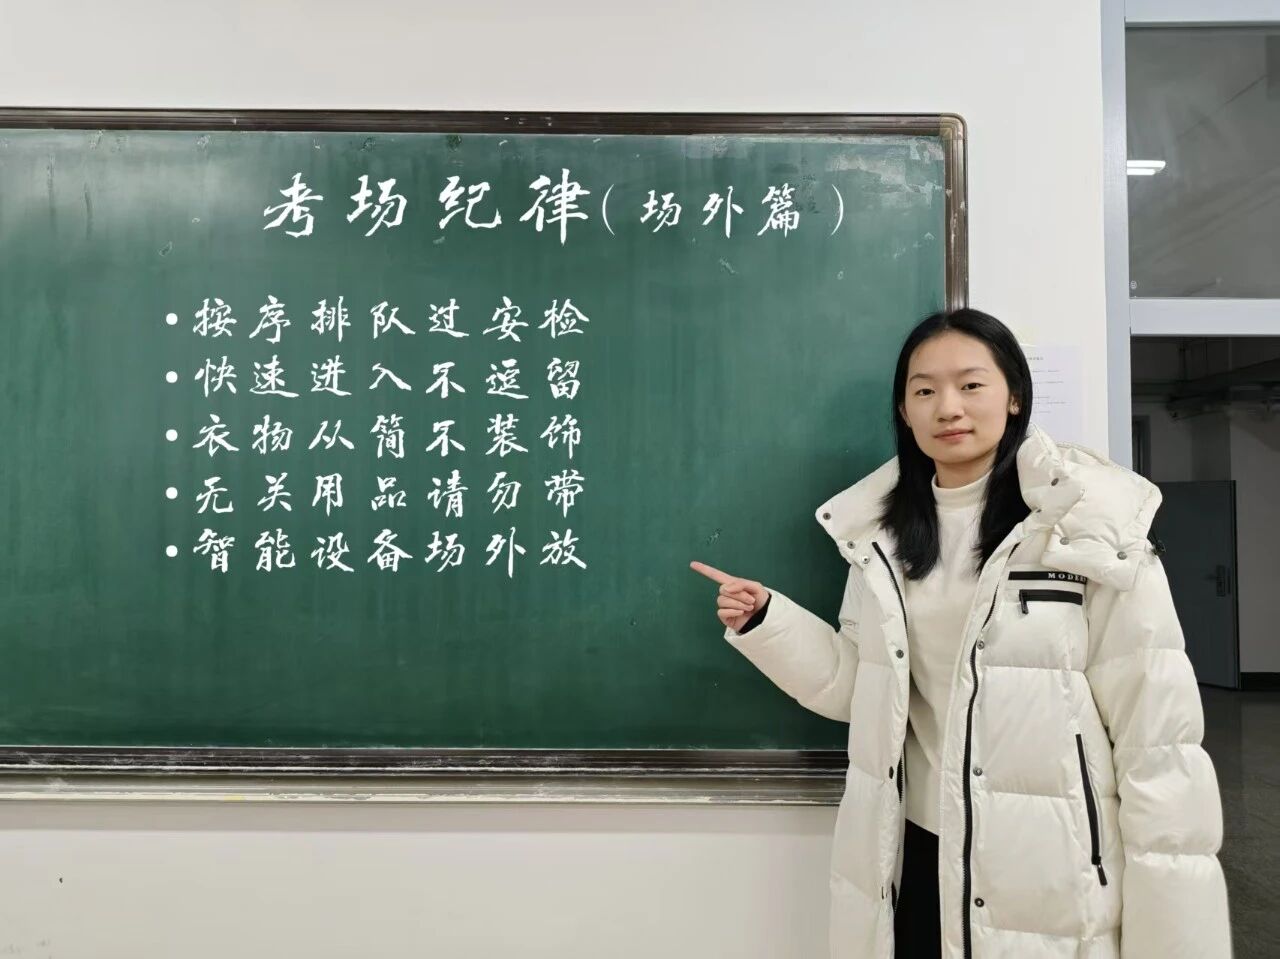 考场纪律（场外篇）
•按序排队过安检
•快速进入不逗留
•衣物从简不装饰
•无关用品请勿带
•智能设备场外放
MODE